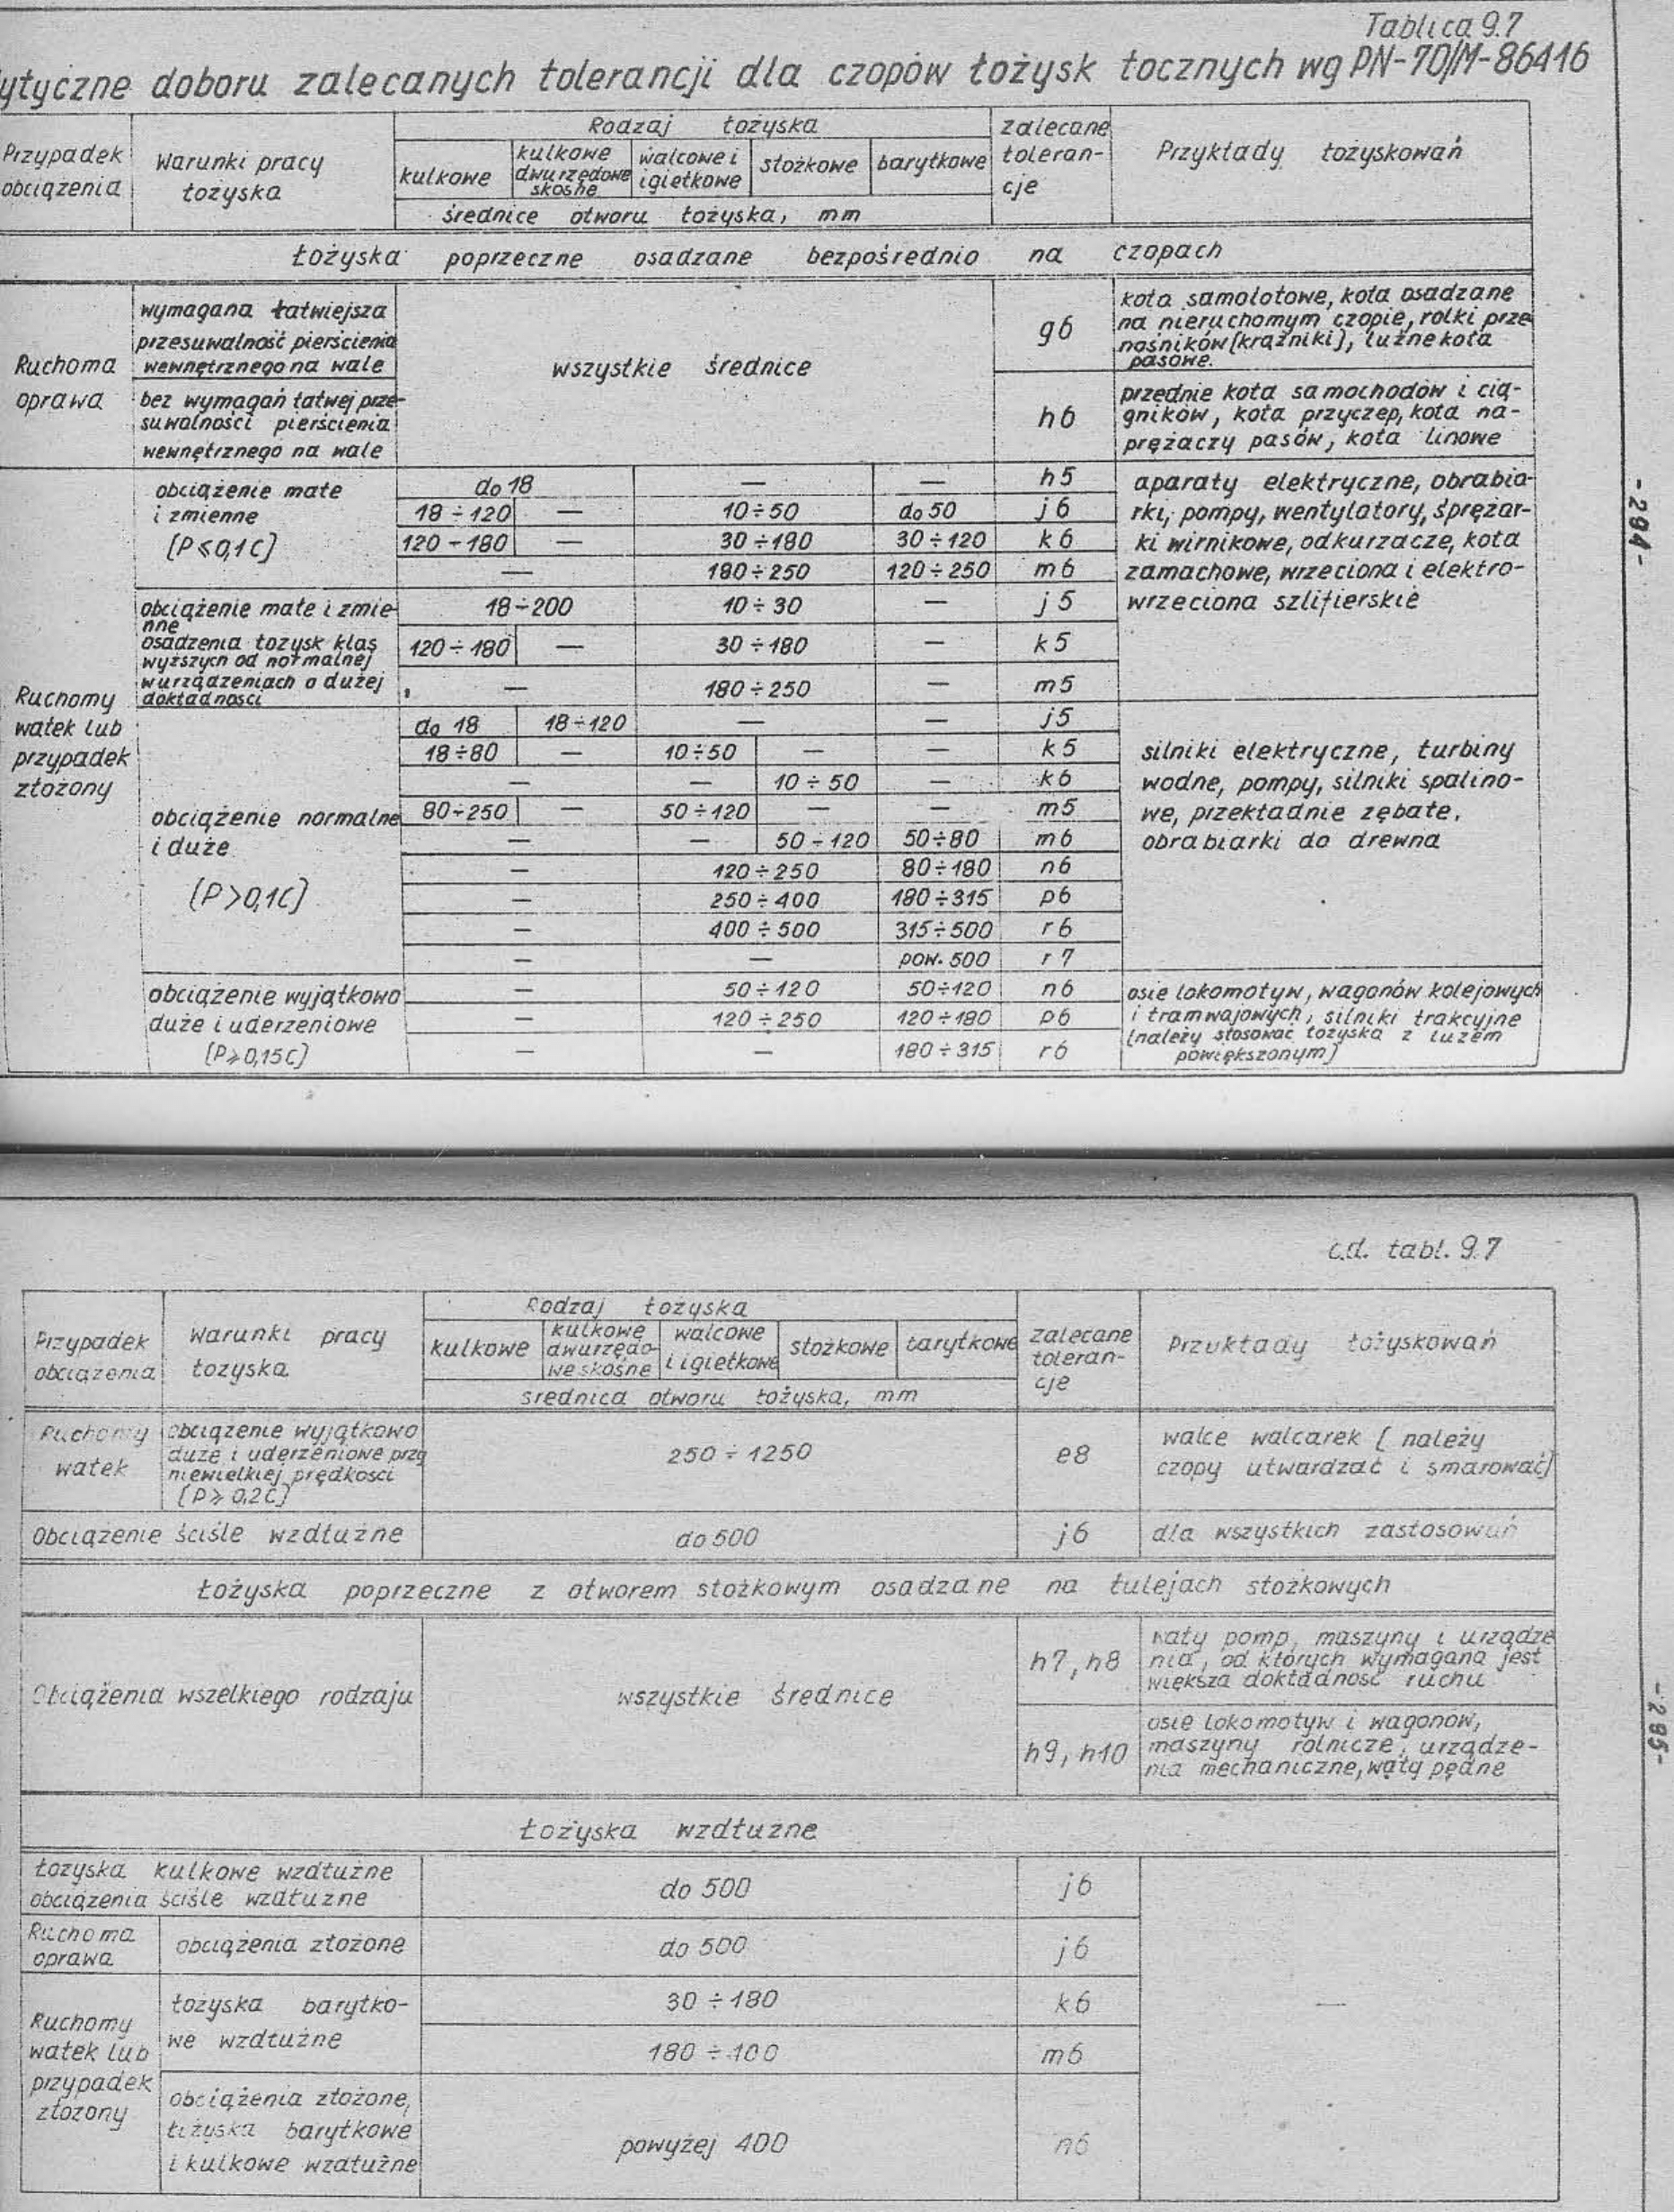 Tablica 9.7
ytyczne doboru zalecanych tolerancji dla czopów łożysk tocznych wg PN-70/M-86416
Przypadek obciążenia
Warunki pracy łożyska
Rodzaj łożyska
kulkowe
kulkowe dwurzędowe skośne
walcowe i igiełkowe
stożkowe
baryłkowe
średnice otworu łożyska, mm
zalecane toleran-
cje
Przykłady łożyskowań
Łożyska poprzeczne osadzane bezpośrednio na czopach
Ruchoma
oprawa
wymagana łatwiejsza
przesuwalność pierścienia
wewnętrznego na wale
bez wymagań łatwej prze-
suwalności pierścienia
wewnętrznego na wale
wszystkie średnice
g6
koła samolotowe, koła osadzane
na nieruchomym czopie, rolki prze
nośników (krążniki), luźne koła
pasowe.
h6
przednie koła samochodów i cią-
gników, koła przyczep, koła na-
prężaczy pasów, koła linowe
Ruchomy
wałek lub
przypadek
złożony
obciążenie małe
i zmienne
[P⩽0,1C]
do 18 — — h5
18 ÷ 120 — 10÷50 do 50 j6
120 ÷ 180 — 30 ÷180 30 ÷120 k6
— 180÷250 120÷250 m6
aparaty elektryczne, obrabia-
rki, pompy, wentylatory, sprężar-
ki wirnikowe, odkurzacze, koła
zamachowe, wrzeciona i elektro-
wrzeciona szlifierskie
obciążenie małe i zmie-
nne
osadzenia łożysk klas
wyższych od normalnej
w urządzeniach o dużej
dokładności
18÷200 10÷30 — j5
120÷180 — 30÷180 — k5
— 180÷250 — m5
obciążenie normalne
i duże
[P>0,1C]
do 18 18÷120 — — j5
18÷80 — 10÷50 — — k5
— — 10÷50 — k6
80÷250 — 50÷120 — — m5
— — 50÷120 50÷80 m6
— 120÷250 80÷180 n6
— 250÷400 180÷315 p6
— 400÷500 315÷500 r6
— — pow. 500 r7
silniki elektryczne, turbiny
wodne, pompy, silniki spalino-
we, przekładnie zębate,
obrabiarki do drewna
obciążenie wyjątkowo
duże i uderzeniowe
[P⩾0,15C]
— 50÷120 50÷120 n6
— 120÷250 120÷180 p6
— — 180÷315 r6
osie lokomotyw, wagonów kolejowych
i tramwajowych, silniki trakcyjne
[należy stosować łożyska z luzem
powiększonym]
-294-
c.d. tabl. 9.7
Przypadek
obciążenia
Warunki pracy
łożyska
Rodzaj łożyska
kulkowe
kulkowe
dwurzędo-
we skośne
walcowe
i igiełkowe
stożkowe
baryłkowe
średnica otworu łożyska, mm
zalecane
toleran-
cje
Przykłady łożyskowań
Ruchomy
wałek
obciążenie wyjątkowo
duże i uderzeniowe przy
niewielkiej prędkości
[P⩾0,2C]
250 ÷ 1250
e8
walce walcarek [należy
czopy utwardzać i smarować]
Obciążenie ściśle wzdłużne
do 500
j6
dla wszystkich zastosowań
Łożyska poprzeczne z otworem stożkowym osadzane na tulejach stożkowych
Obciążenia wszelkiego rodzaju
wszystkie średnice
h7, h8
wały pomp, maszyny i urządze
nia, od których wymagana jest
większa dokładność ruchu
h9, h10
osie lokomotyw i wagonów,
maszyny rolnicze, urządze-
nia mechaniczne, wały pędne
Łożyska wzdłużne
Łożyska kulkowe wzdłużne
obciążenia ściśle wzdłużne
do 500
j6
Ruchoma
oprawa
obciążenia złożone
do 500
j6
Ruchomy
wałek lub
przypadek
złożony
łożyska baryłko-
we wzdłużne
30 ÷ 180
k6
180 ÷ 400
m6
obciążenia złożone,
łożyska baryłkowe
i kulkowe wzdłużne
powyżej 400
n6
—
-295-